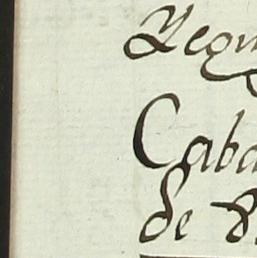 Yegu
Caba
de